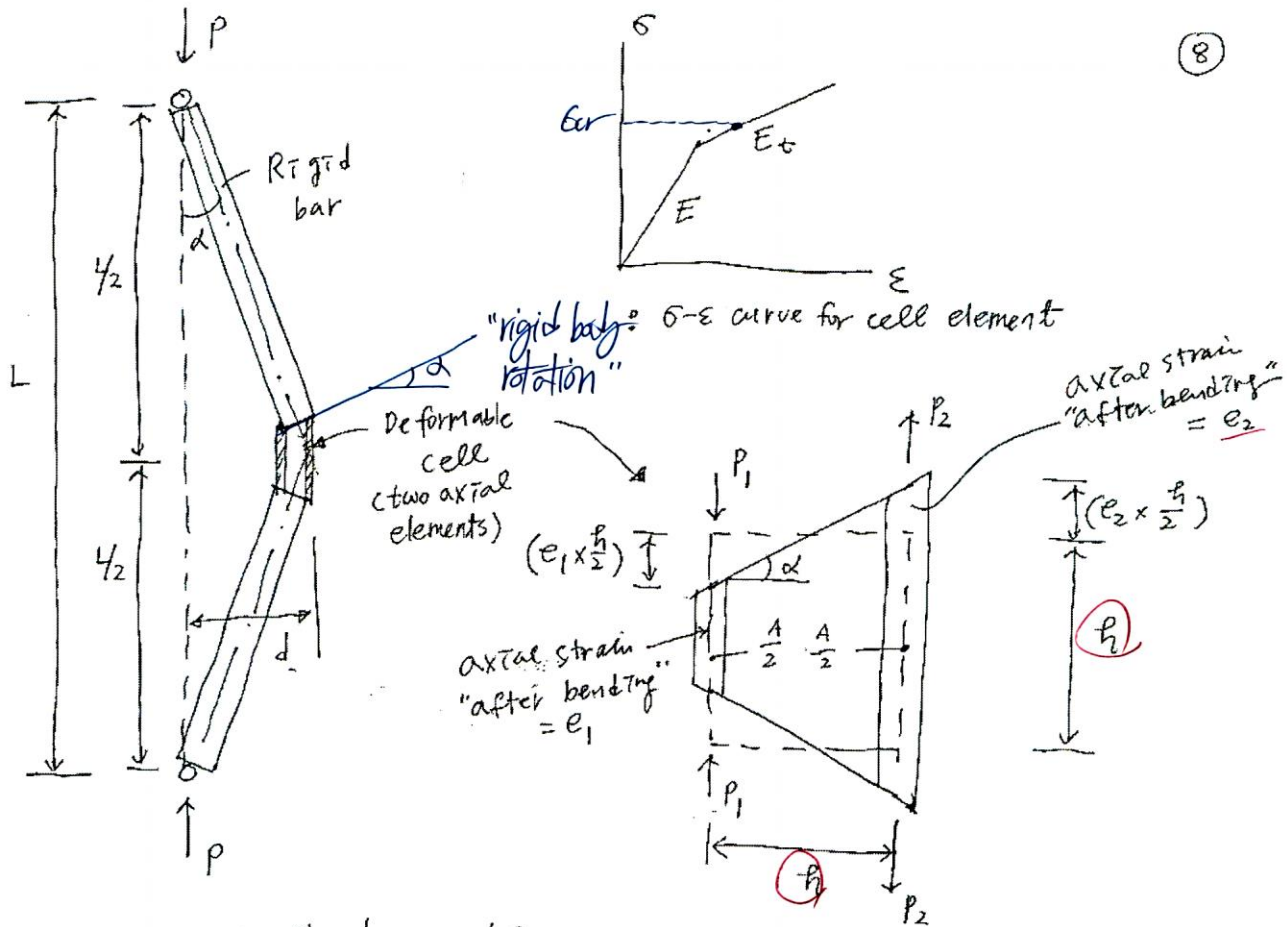 ⑧
P
σ
σcr
E_t
E
ε
Rigid
bar
α
L/2
L
L/2
"rigid body
rotation"
: σ-ε curve for cell element
α
Deformable
cell
(two axial
elements)
d
P
P₁
P₂
axial strain
"after bending"
= e₂
(e₁ × h/2)
(e₂ × h/2)
α
A/2 A/2
h
axial strain
"after bending"
= e₁
P₁
h
P₂